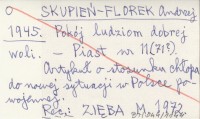 SKUPIEŃ-FLOREK Andrzej
1945. Pokój ludziom dobrej
woli. - Piast nr 11(718)
Artykuł o stosunku chłopa
do nowej sytuacji w Polsce po-
wojennej.
Rec.: ZIĘBA M. 1972